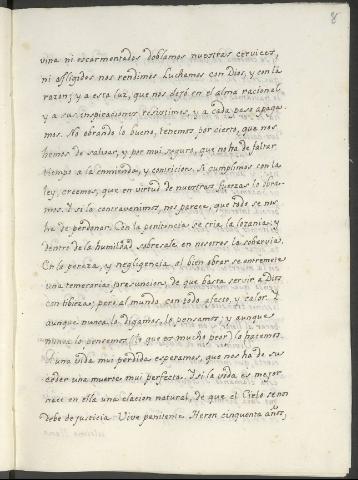 8
vina ni escarmentados doblamos nuestras cervices,
ni afligidos nos rendimos. Luchamos con Dios, y con la
razon; y a esta luz, que nos dejó en el alma racional
y a sus inspiraciones resistimos, y a cada paso apaga-
mos. No obrando lo bueno, tenemos por cierto, que nos
hemos de salvar, y por mui seguro, que no ha de faltar
tiempo a la enmienda, y contricion. Si cumplimos con la
ley, creemos, que en virtud de nuestras fuerzas lo obra-
mos. Y si la contravenimos, nos parece, que todo se nos
ha de perdonar. Con la penitencia se cria la lozania, y
dentro de la humildad sobresale en nosotros la sobervia.
En la pereza, y negligencia, el bien obrar se entremete
una temeraria presuncion, de que basta servir a Dios
con tibieza; pero al mundo con todo afecto, y calor. Y
aunque nunca lo digamos, lo pensamos; y aunque
nunca lo pensemos (lo que es mucho peor) lo hacemos.
A una vida mui perdida esperamos, que nos ha de su-
ceder una muerte mui perfecta. Y si la vida es mejor,
nace en ella una elacion natural, de que el Cielo se nos
debe de justicia. Vive penitente Heron cinquenta años,